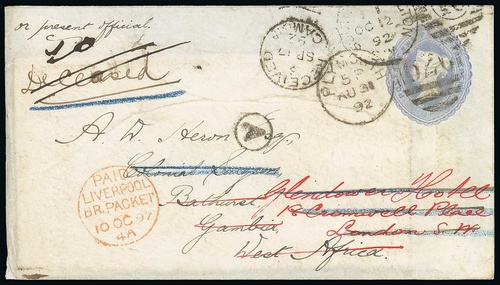 or present official.
Deceased
A. D. Heron Esq,
Colonial Surgeon
Bathurst
Gambia
West Africa.
Glendower Hotel
18 Cromwell Place
London S.W.
A
PAID
LIVERPOOL
BR. PACKET
10 OC 92
4A
RECEIVED
SP 17
92
PLYMOUTH
AU 31
92
OC 12
92